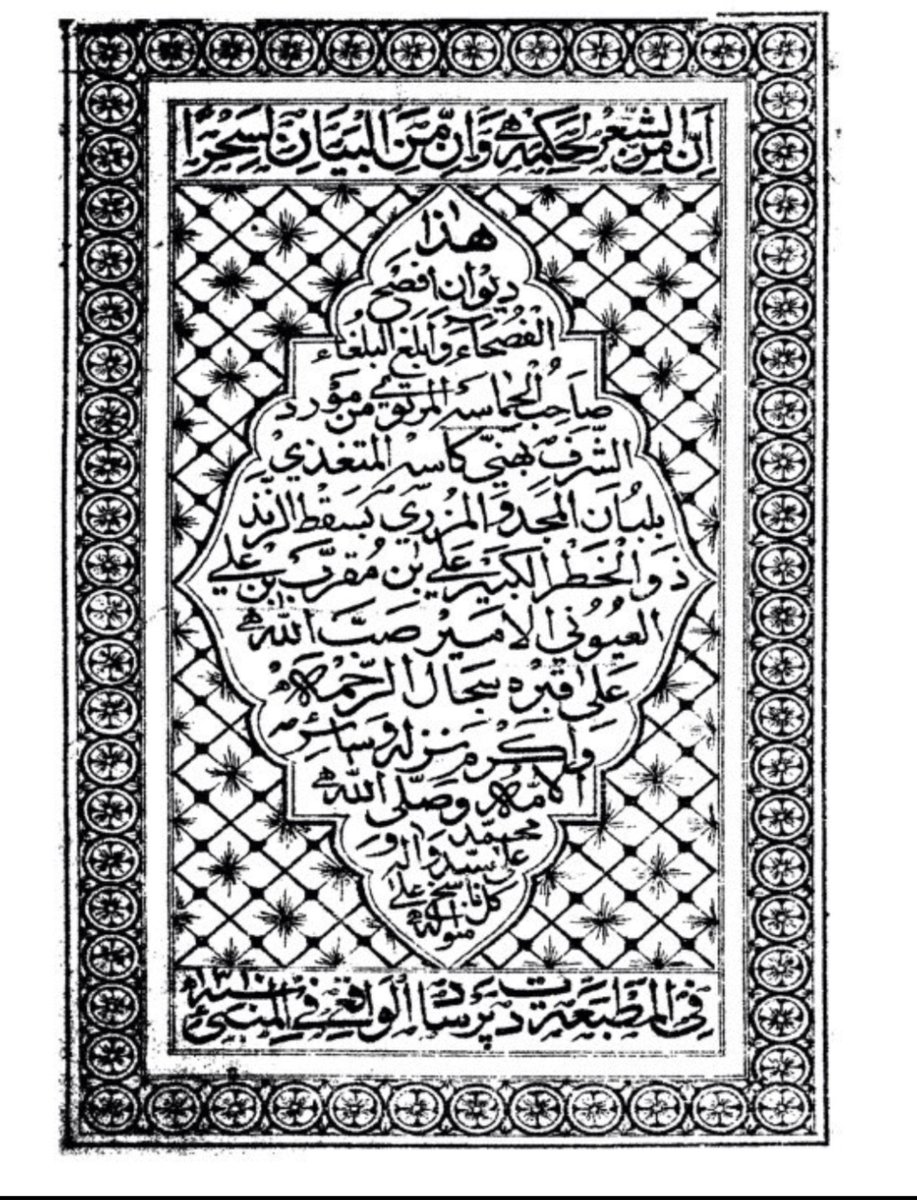 اِنَّ مِنَ الشِّعْرِ لَحِكْمَة وَاِنَّ مِنَ الْبَيَانِ لَسِحْرًا
هٰذَا
ديوان افصح
الفُصَحَاءِ وَابلَغ البلغَاء
صَاحِبُ الحَماسَه المرتوي من مَوْرد
الشرَف بهنيّ كاسه المتغذي
بلبَان المجد والمزري بسَقط الزند
ذو الخطر الكبير عَلي بن مُقرّب بن علي
العيوني الامير صَبَّ الله
عَلىٰ قبره سجال الرّحمة
وَاكرم منزله وسَائر
الامّة وصَلى الله
محمد
على سيد واله و
كل ناسخ على
منواله
في المَطبَعَة دت پرساد الواقع في المنبئ سنه ١٣١٠